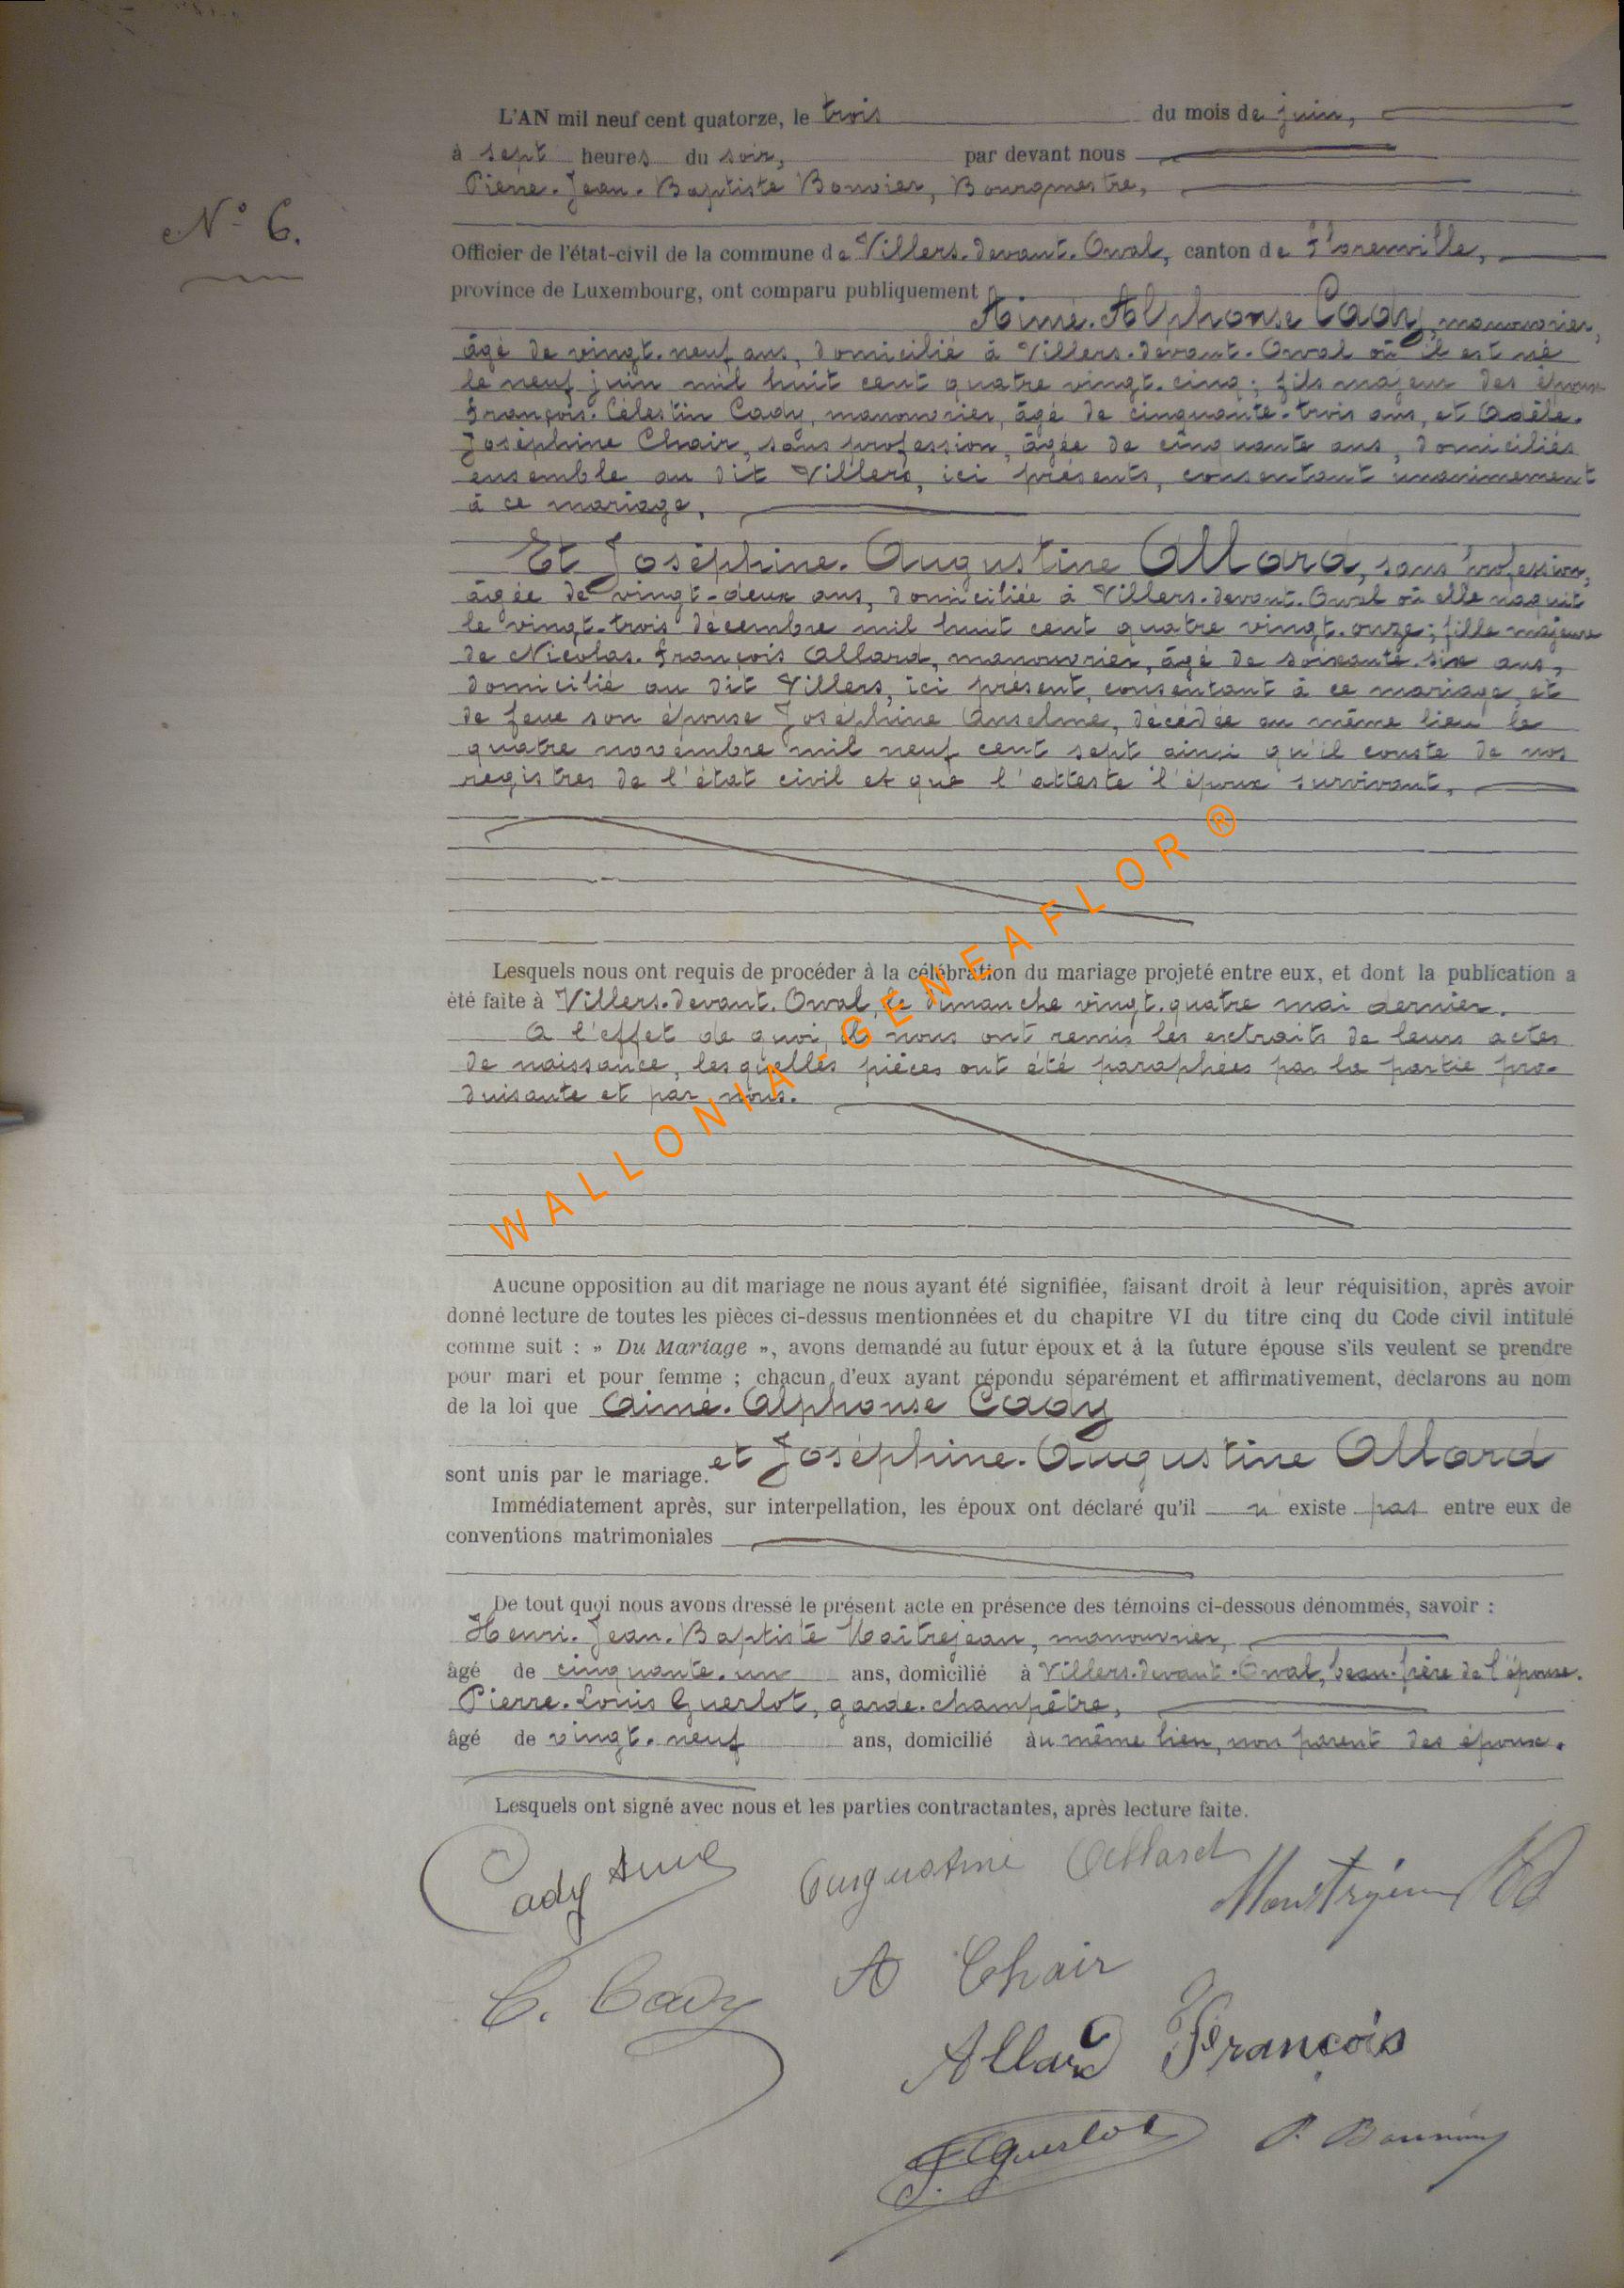 L'AN mil neuf cent quatorze, le trois du mois de juin,
à sept heures du soir, par devant nous
Pierre-Jean-Baptiste Bonvier, Bourgmestre,
N° 6.
Officier de l'état-civil de la commune de Villers-devant-Orval, canton de Florenville,
province de Luxembourg, ont comparu publiquement
Aimé-Alphonse Cady, manouvrier,
âgé de vingt-neuf ans, domicilié à Villers-devant-Orval où il est né
le neuf juin mil huit cent quatre vingt-cinq; fils majeur des époux
François-Célestin Cady, manouvrier, âgé de cinquante-trois ans, et Adèle-
Joséphine Chair, sans profession, âgée de cinquante ans, domiciliés
ensemble au dit Villers, ici présents, consentant unanimement
à ce mariage,
Et Joséphine-Augustine Allard, sans profession,
âgée de vingt-deux ans, domiciliée à Villers-devant-Orval où elle naquit
le vingt-trois décembre mil huit cent quatre vingt-onze; fille majeure
de Nicolas-François Allard, manouvrier, âgé de soixante-six ans,
domicilié au dit Villers, ici présent, consentant à ce mariage, et
de feue son épouse Joséphine Anselme, décédée au même lieu le
quatre novembre mil neuf cent sept ainsi qu'il conste de nos
registres de l'état civil et que l'atteste l'époux survivant.
Lesquels nous ont requis de procéder à la célébration du mariage projeté entre eux, et dont la publication a
été faite à Villers-devant-Orval, le dimanche vingt-quatre mai dernier.
A l'effet de quoi, ils nous ont remis les extraits de leurs actes
de naissance, lesquelles pièces ont été paraphées par la partie pro-
duisante et par nous.
WALLONIA-GENEAFLOR ®
Aucune opposition au dit mariage ne nous ayant été signifiée, faisant droit à leur réquisition, après avoir
donné lecture de toutes les pièces ci-dessus mentionnées et du chapitre VI du titre cinq du Code civil intitulé
comme suit : » Du Mariage », avons demandé au futur époux et à la future épouse s'ils veulent se prendre
pour mari et pour femme ; chacun d'eux ayant répondu séparément et affirmativement, déclarons au nom
de la loi que Aimé-Alphonse Cady
et Joséphine-Augustine Allard
sont unis par le mariage.
Immédiatement après, sur interpellation, les époux ont déclaré qu'il n' existe pas entre eux de
conventions matrimoniales
De tout quoi nous avons dressé le présent acte en présence des témoins ci-dessous dénommés, savoir :
Henri-Jean-Baptiste Maîtrejean, manouvrier,
âgé de cinquante-un ans, domicilié à Villers-devant-Orval, beau-frère de l'épouse.
Pierre-Louis Guerlot, garde-champêtre,
âgé de vingt-neuf ans, domicilié au même lieu, non parent des époux.
Lesquels ont signé avec nous et les parties contractantes, après lecture faite.
Cady Aimé Augustine Allard
C. Cady A Chair
Allard François
Guerlot